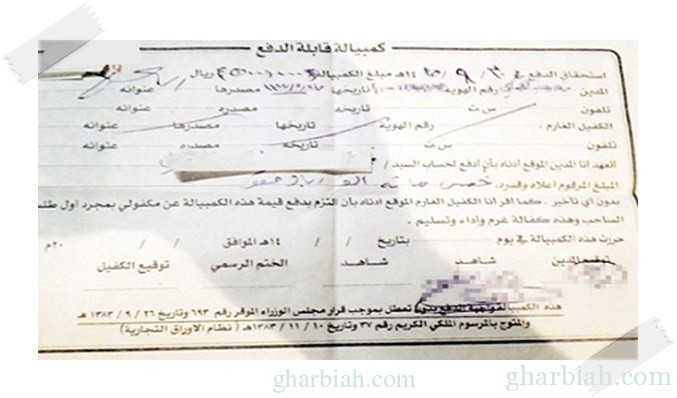 كمبيالة قابلة الدفع
استحقاق الدفع في ٣٠/٩/ ١٤هـ مبلغ الكمبيالة ريال
المدين رقم الهوية تاريخها مصدرها عنوانه
تلفون س ت تاريخه مصدره عنوانه
الكفيل الغارم رقم الهوية تاريخها مصدرها عنوانه
تلفون س ت تاريخه مصدره عنوانه
اتعهد انا المدين الموقع ادناه بأن ادفع لحساب السيد /
المبلغ المرقوم اعلاه وقدره
بدون أي تأخير . كما اقر انا الكفيل الغارم الموقع ادناه بأن التزم بدفع قيمة هذه الكمبيالة عن مكفولي بمجرد أول طلب
الصاحب وهذه كفالة غرم وأداء وتسليم .
حررت هذه الكمبيالة في يوم بتاريخ / / ١٤هـ الموافق / / ٢٠م
توقيع المدين شاهد شاهد الختم الرسمي توقيع الكفيل
هذه الكمبيالة واجبة الدفع بدون تعطل بموجب قرار مجلس الوزراء الموقر رقم ٦٩٣ وتاريخ ٢٦ / ٩ / ١٣٨٣ هـ
والمتوج بالمرسوم الملكي الكريم رقم ٣٧ وتاريخ ١٠ / ١١ / ١٣٨٣هـ ( نظام الاوراق التجارية )
gharbiah.com
gharbiah.com